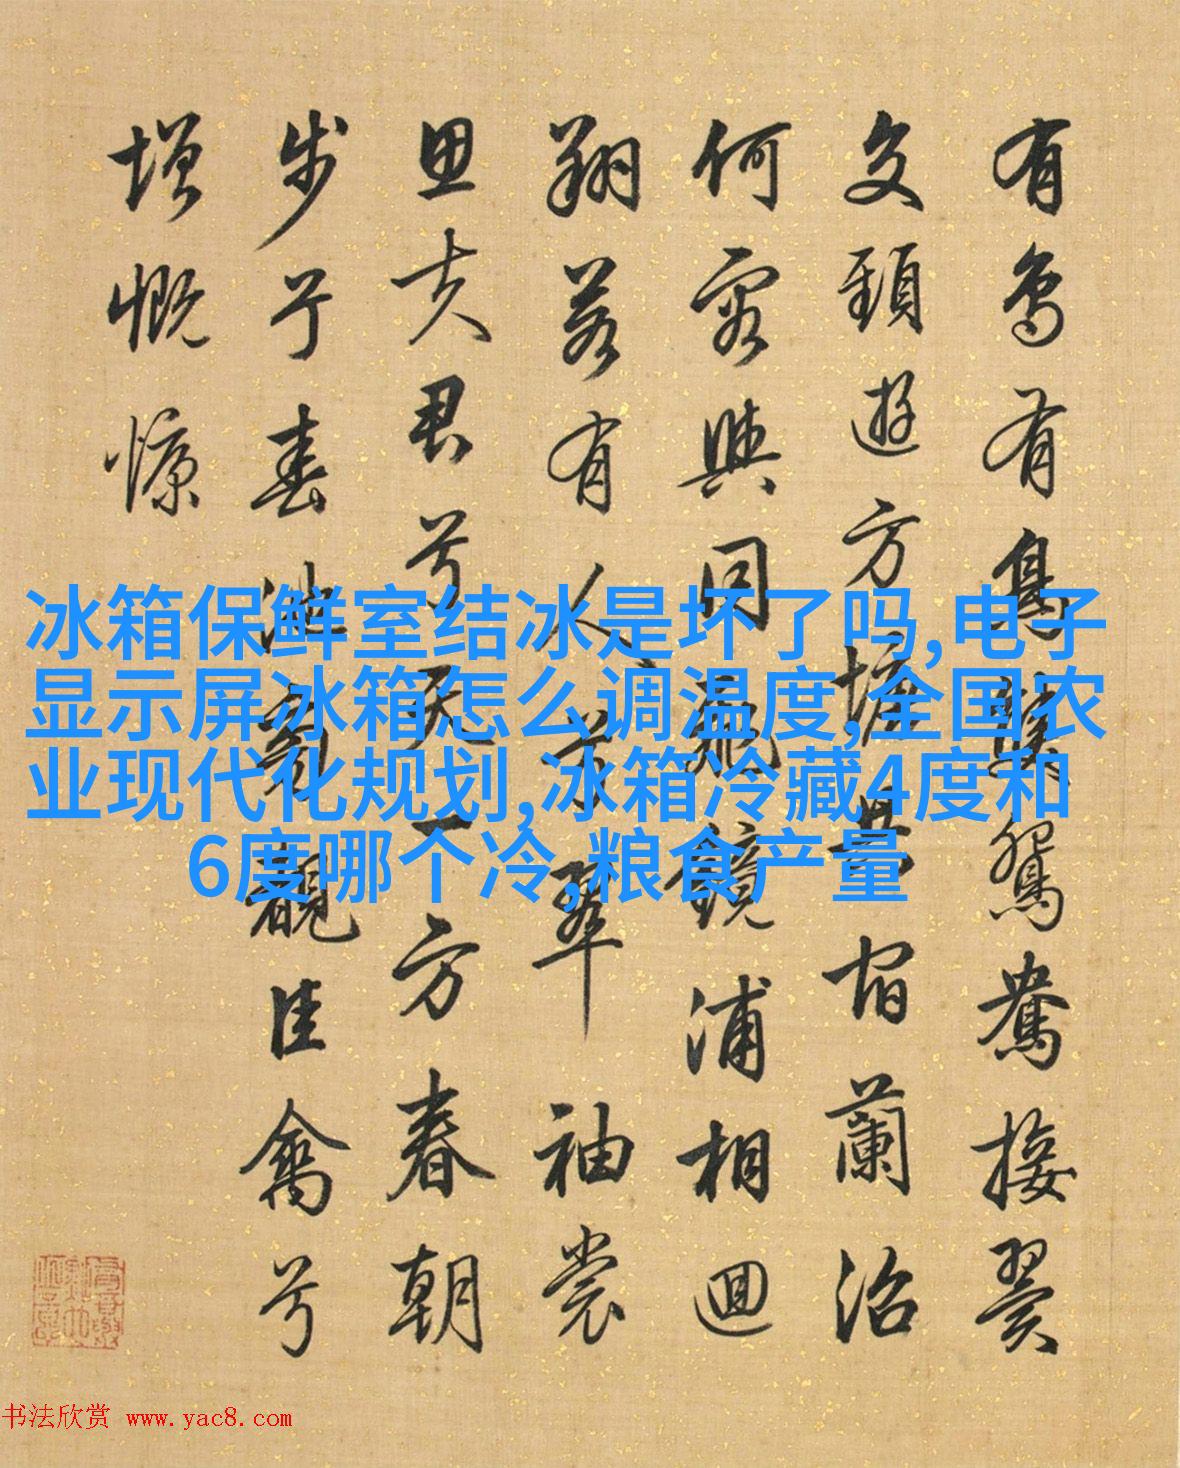 有鳥有鳥鴛鴦接翼
交頸遊方塘暮宿蘭沼
何容與同飛鏡浦相迴
翔若有人兮翠袖裳
思夫君兮天一方春朝
步兮春觀佳禽兮
增慨慷
冰箱保鲜室结冰是坏了吗,电子
显示屏冰箱怎么调温度,全国农
业现代化规划,冰箱冷藏4度和
6度哪个冷,粮食产量
书法欣赏 www.yac8.com